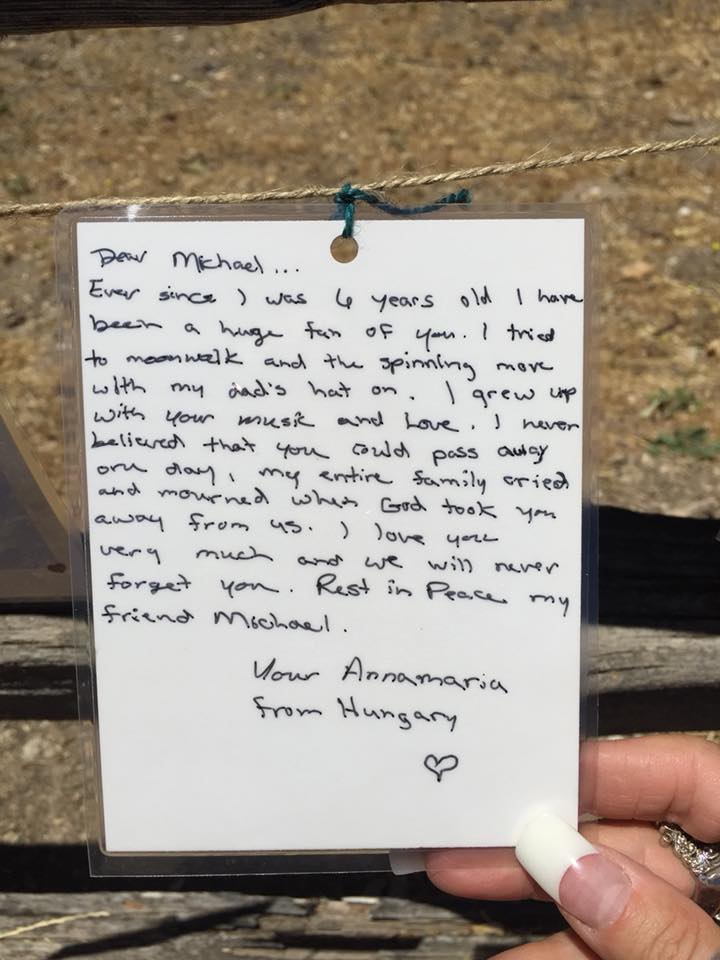 Dear Michael...
Ever since I was 6 years old I have
been a huge fan of you. I tried
to moonwalk and the spinning move
with my dad's hat on. I grew up
with your music and Love. I never
believed that you could pass away
one day, my entire family cried
and mourned when God took you
away from us. I love you
very much and we will never
forget you. Rest in Peace my
friend Michael.
Your Annamaria
from Hungary